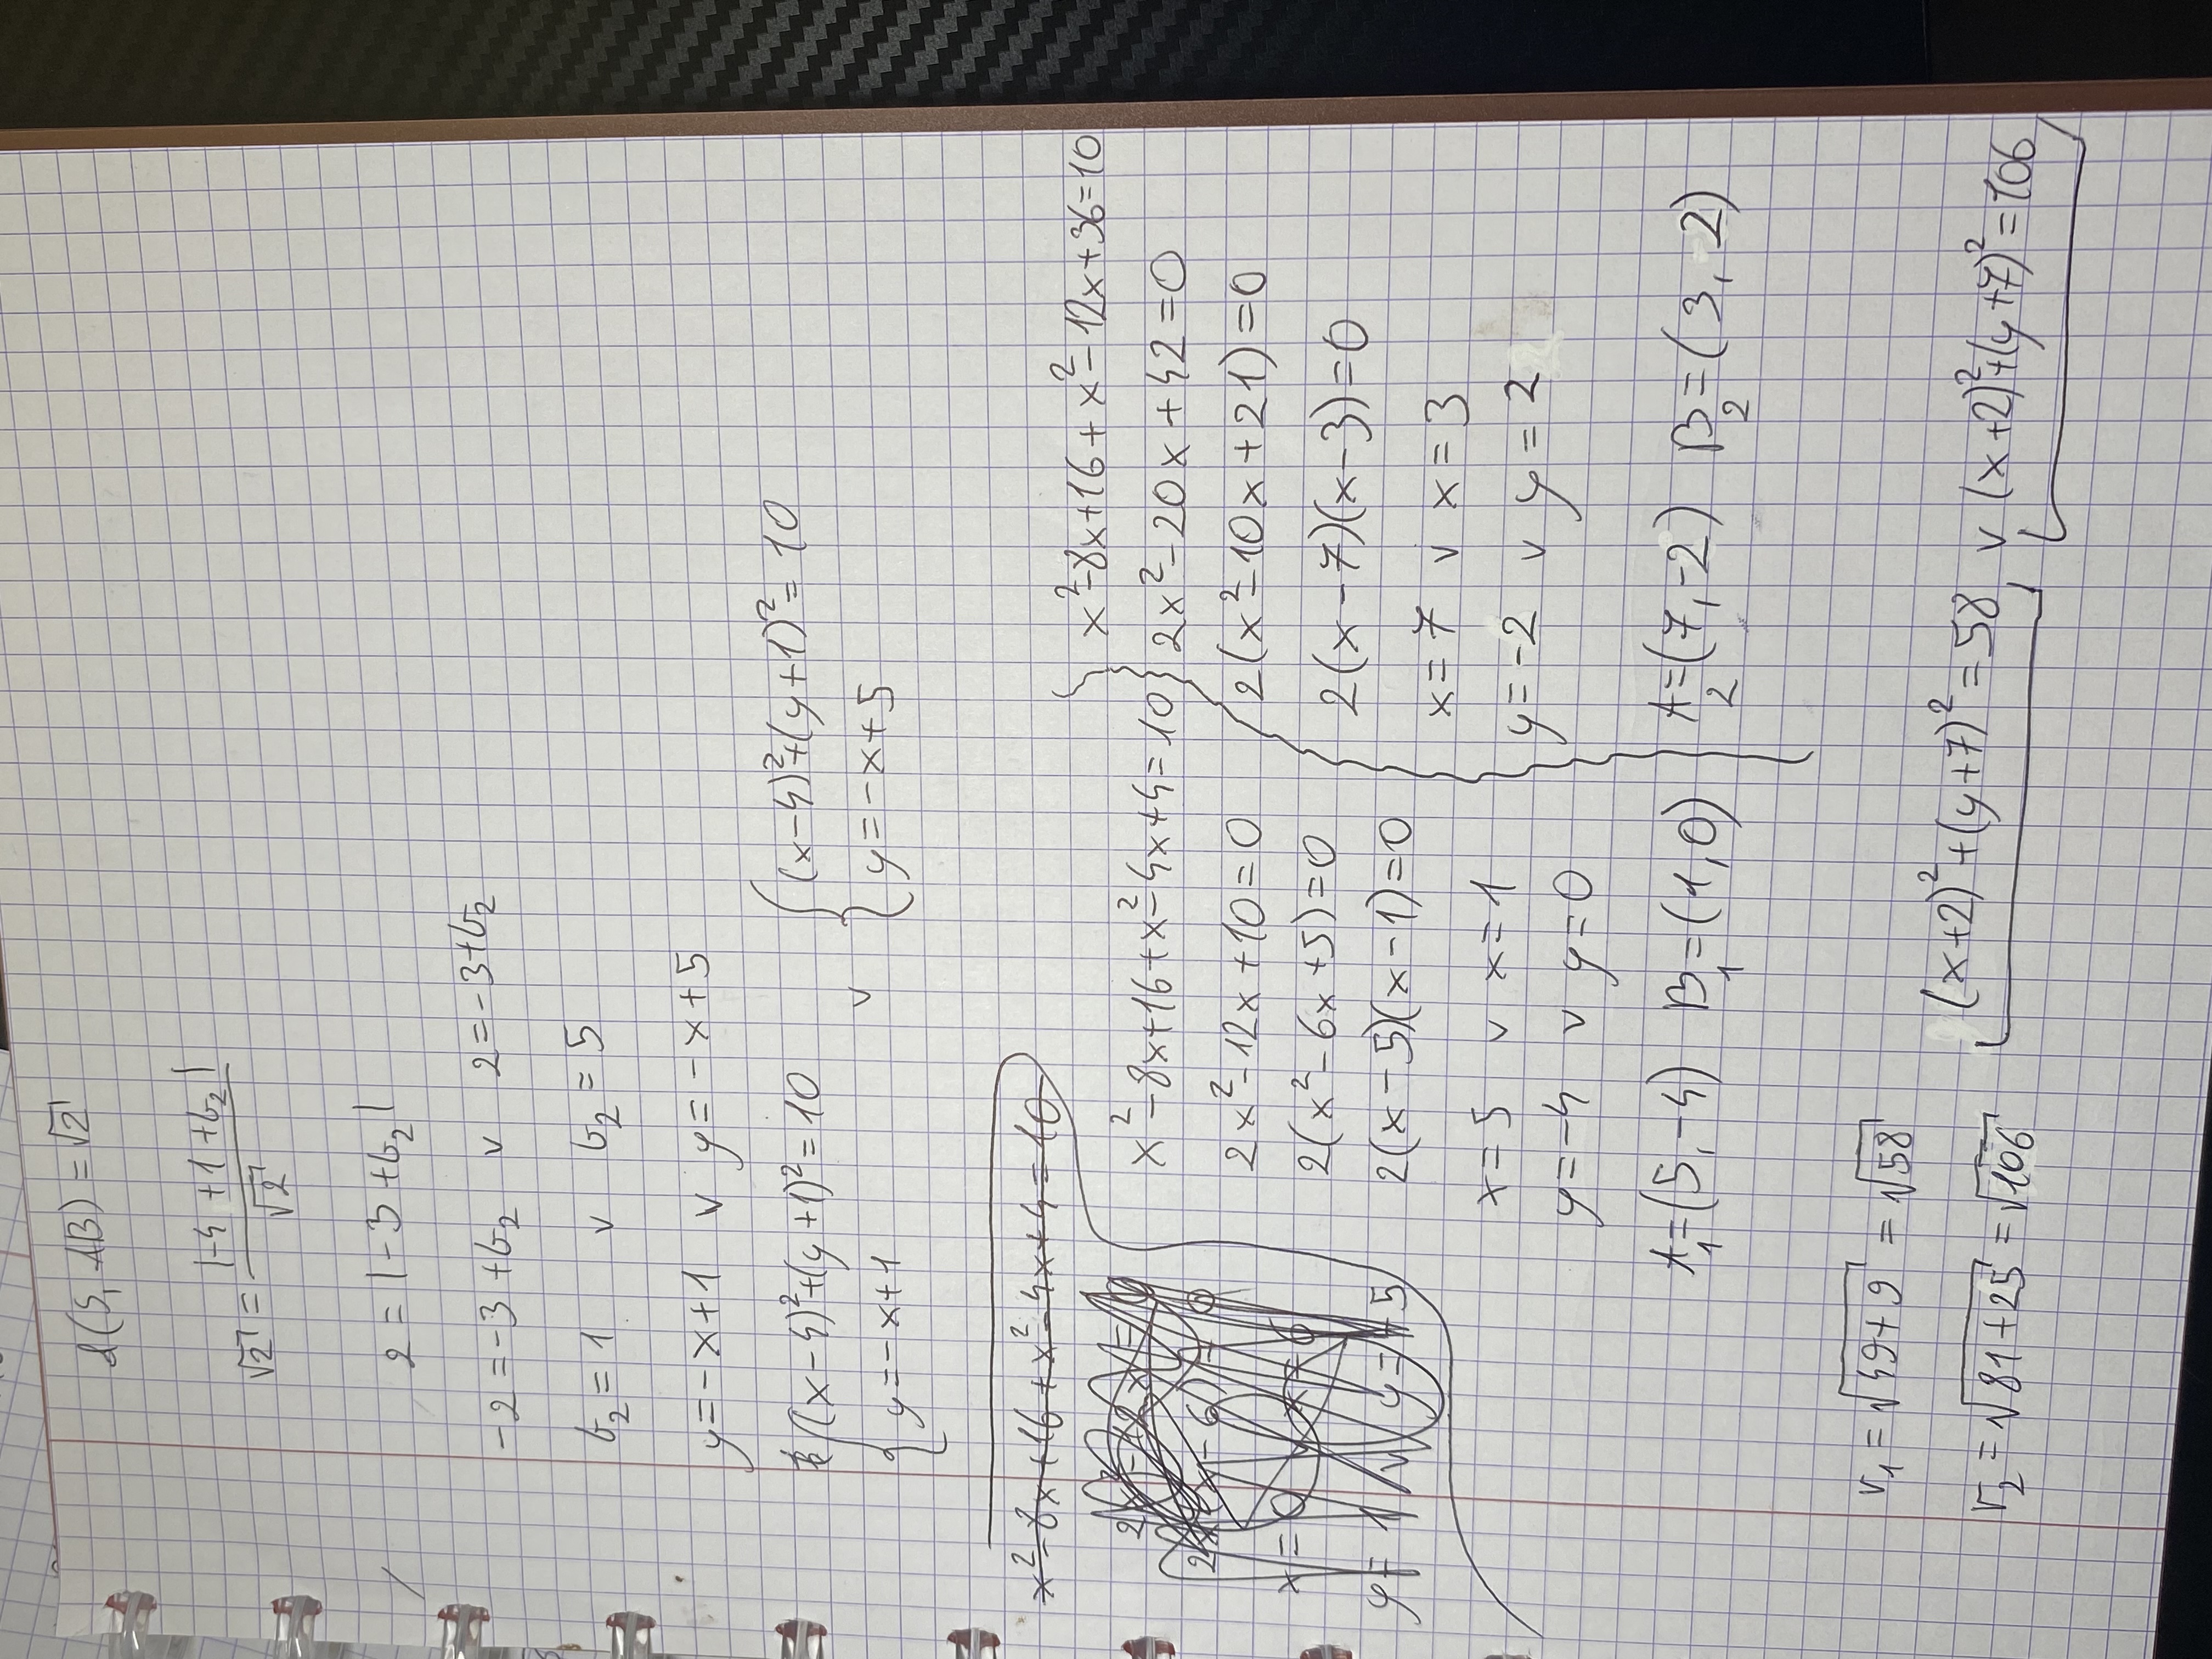 d(S, AB) = √2
√2 = |-4+1+b₂| / √2
2 = |-3+b₂|
-2 = -3+b₂ v 2 = -3+b₂
b₂ = 1 v b₂ = 5
y = -x+1 v y = -x+5
{(x-4)²+(y+1)² = 10 v {(x-4)²+(y+1)² = 10
{y = -x+1 {y = -x+5
x²-8x+16+x²-4x+4=10
x = 0 x = 6
y = 1 v y = 5
x²-8x+16+x²-4x+4=10
2x²-12x+10=0
2(x²-6x+5)=0
2(x-5)(x-1)=0
x=5 v x=1
y=-4 v y=0
A₁=(5,-4) B₁=(1,0)
x²-8x+16+x²-12x+36=10
2x²-20x+42=0
2(x²-10x+21)=0
2(x-7)(x-3)=0
x=7 v x=3
y=-2 v y=2
A₂=(7,-2) B₂=(3, 2)
r₁=√49+9 = √58
r₂=√81+25 = √106
(x+2)²+(y+7)²=58 v (x+2)²+(y+7)²=106